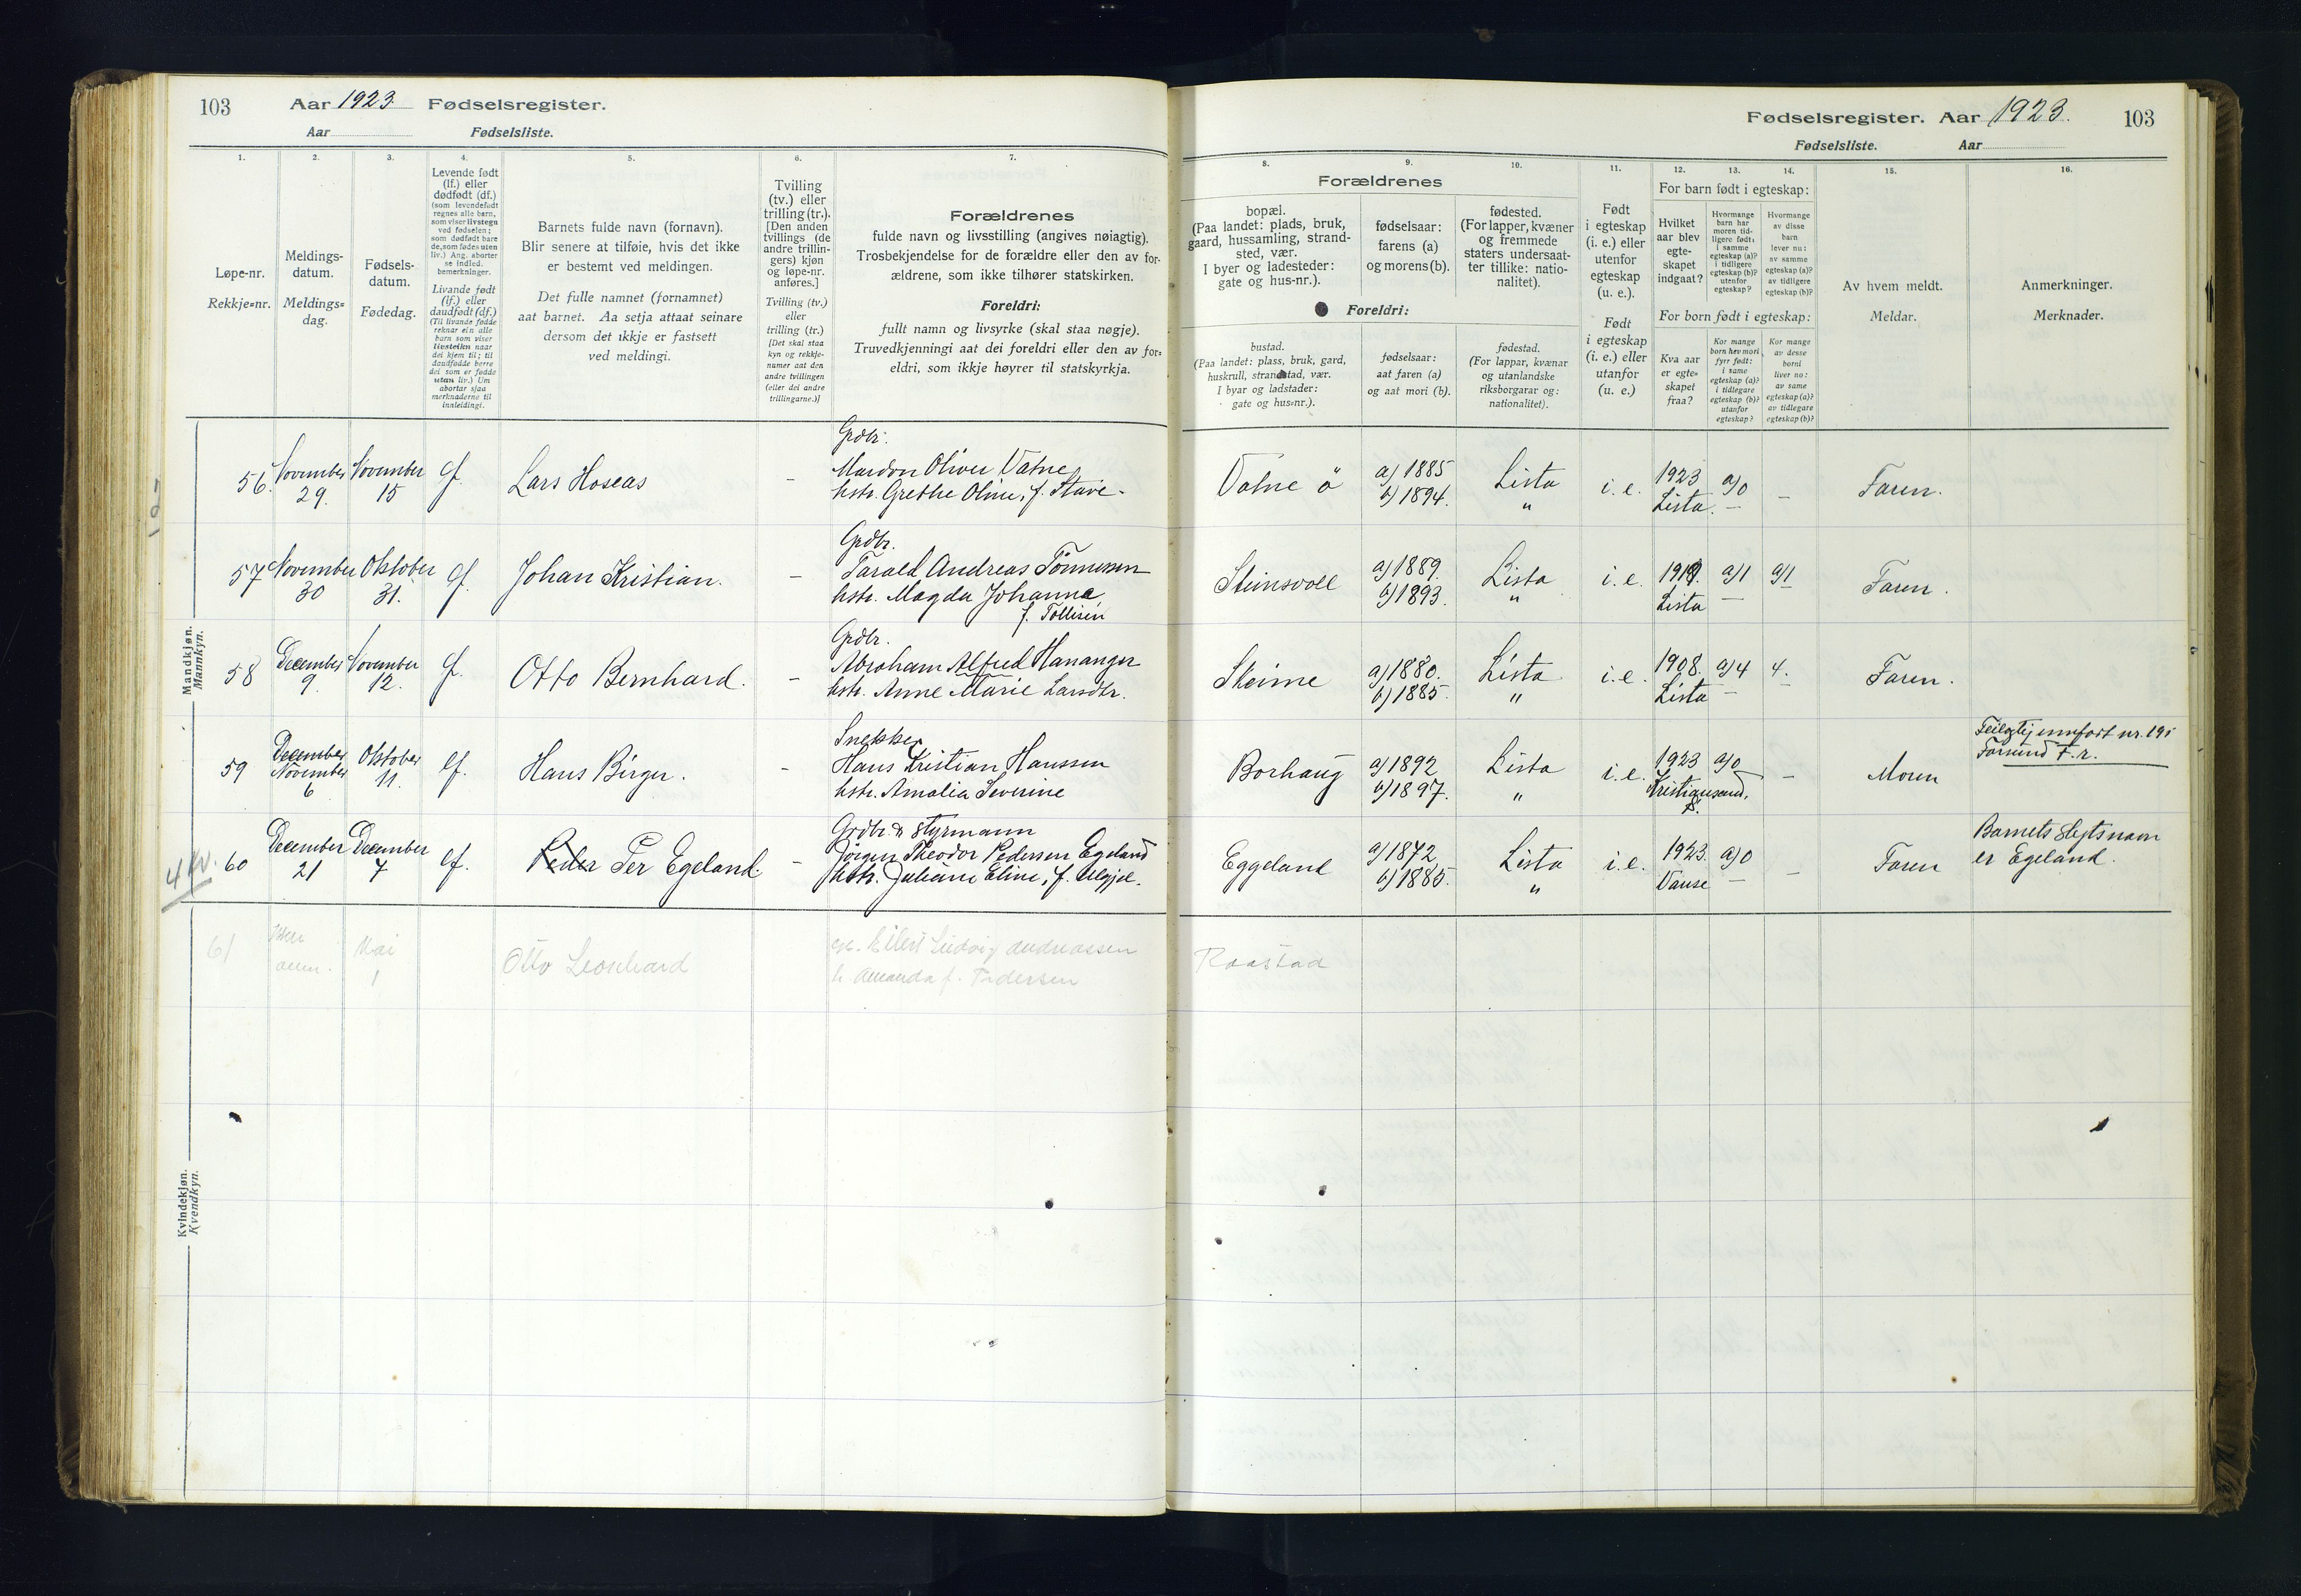 103 Aar 1923 Fødselsregister.
Aar Fødselsliste.
1. 2. 3. 4. 5. 6. 7.
Løpe-nr.
Rekkje=nr.
Meldings-
datum.
Meldings=
dag.
Fødsels-
datum.
Fødedag.
Levende født
(lf.) eller
dødfødt (df.)
(som levendefødt
regnes alle barn,
som viser livstegn
ved fødselen;
som dødfødt bare
de, som fødes uten
liv.) Ang. aborter
se indled.
bemerkninger.
Livande født
(lf.) eller
daudfødt (df.)
(Til livande fødde
reknar ein alle
barn som viser
livsteikn naar
dei kjem til; til
daudfødde berre
dei som er fødde
utan liv.) Um
abortar sjaa
merknaderne til
innleidingi.
Barnets fulde navn (fornavn).
Blir senere at tilføie, hvis det ikke
er bestemt ved meldingen.
Det fulle namnet (fornamnet)
aat barnet. Aa setja attaat seinare
dersom det ikkje er fastsett
ved meldingi.
Tvilling
(tv.) eller
trilling (tr.).
[Den anden
tvillings (de
andre trillin-
gers) kjøn
og løpe-nr.
anføres.]
Tvilling (tv.)
eller
trilling (tr.)
[Det skal staa
kyn og rekkje-
numer aat den
andre tvillingen
(eller dei andre
trillingarne.)]
Forældrenes
fulde navn og livsstilling (angives nøiagtig).
Trosbekjendelse for de forældre eller den av for-
ældrene, som ikke tilhører statskirken.
Foreldri:
fullt namn og livsyrke (skal staa nøgje).
Truvedkjenningi aat dei foreldri eller den av for=
eldri, som ikkje høyrer til statskyrkja.
Mandkjøn.
Mannkyn.
56. November 29. November 15 lf. Lars Hoseas -
Grdbr.
Mardon Oliver Vatne
hstr. Grethe Oline, f. Stave.
57 November 30 Oktober 31. lf. Johan Kristian. -
Grdbr.
Tarald Andreas Tönnessen
hstr. Magda Johanne
f. Tollisen
58 December 9. November 12. lf. Otto Bernhard. -
Grdbr.
Abraham Alfred Hananger
hstr. Anne Marie Larsdtr.
59 December November 6 Oktober 11. lf. Hans Birger. -
Snekker
Hans Kristian Hanssen
hstr. Amalia Severine
60 December 21 December 7 lf. Peder Per Egeland. -
Grdbr. & styrmann
Jörgen Theodor Pedersen Egeland
hstr. Juliane Eline, f.
61 Mai 1 Otto Leonhard
Eilert Ludvig Andreassen
h. Amanda f. Pedersen
Kvindekjøn.
Kvendkyn.
Fødselsregister. Aar 1923. 103
Fødselsliste. Aar
8. 9. 10. 11. 12. 13. 14. 15. 16.
Forældrenes
bopæl.
(Paa landet: plads, bruk,
gaard, hussamling, strand-
sted, vær.
I byer og ladesteder:
gate og hus-nr.).
fødselsaar:
farens (a)
og morens (b).
fødested.
(For lapper, kvæner
og fremmede
staters undersaat-
ter tillike: natio-
nalitet).
Foreldri:
bustad.
(Paa landet: plass, bruk, gard,
huskrull, strandstad, vær.
I byar og ladstader:
gate og hus=nr.).
fødselsaar:
aat faren (a)
og aat mori (b).
fødestad.
(For lappar, kvænar
og utanlandske
riksborgarar og:
nationalitet).
Født
i egteskap
(i. e.) eller
utenfor
egteskap
(u. e.).
Født
i egteskap
(i. e.) eller
utanfor
(u. e.)
For barn født i egteskap:
Hvilket
aar blev
egte-
skapet
indgaat?
Hvormange
barn har
moren tid-
ligere født:
i samme
egteskap (a)?
i tidligere
egteskap (b)?
utenfor
egteskap?
Hvormange
av disse
barn
lever nu:
av samme
egteskap (a)?
av tidligere
egteskap (b)?
For born født i egteskap:
Kva aar
er egte=
skapet
fraa?
Kor mange
born hev mori
fyrr født:
i same
egteskap (a)?
i tidlegare
egteskap (b)?
utanfor
egteskap?
Kor mange
av desse
borni
liver no:
av same
egteskap (a)?
av tidlegare
egteskap (b)?
Av hvem meldt.
Meldar.
Anmerkninger.
Merknader.
Vatne ö a) 1885 Lista i.e. 1923 a) 0 - Faren.
b) 1894. " Lista. -
Steinsvoll a) 1889. Lista i.e. 1919. a) 1 a) 1 Faren.
b) 1893. " Lista - -
Steine a) 1880. Lista i.e. 1908. a) 4 4. Faren.
b) 1885. " Lista -
Borhaug a) 1892 Lista i.e. 1923 a) 0 - Moren
b) 1897. " Kristiansand.
Feilagtig innført nr. 19 i
Farsund F.r.
Eggeland a) 1872 Lista i.e. 1923. a) 0 - Faren
b) 1885. " Vanse -
Barnets slegtsnavn
er Egeland.
Raastad